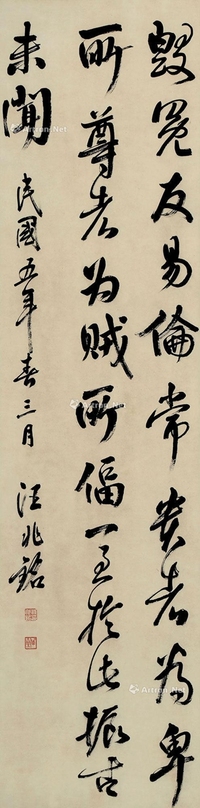 毁冕反易倫常贵者為卑
所尊者为賊所偪一至於此振古
未聞
民國五年春三月 汪兆銘